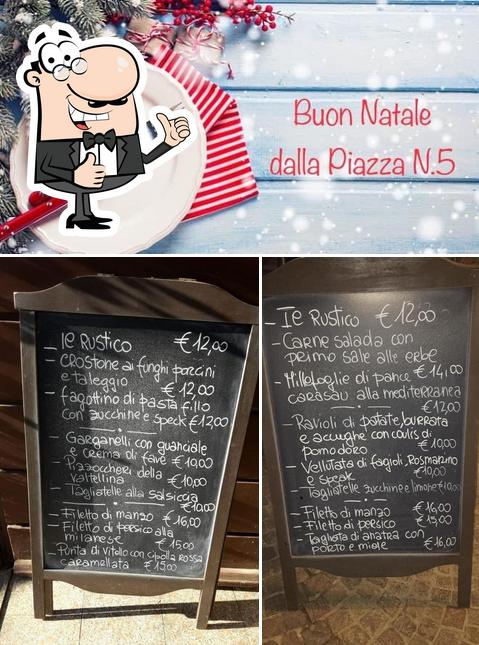 Buon Natale
dalla Piazza N.5
_ Ie Rustico €12,00
- CROStone ai funghi porcini
e taleggio € 12,00
- fagottino di pasta fillo
con zucchine e speck €12,00
- Garganelli con guanciale
e crema di fave € 10,00
- Pizzoccheri della
Valtellina € 10,00
- Tagliatelle alla salsiccia
€10,00
- Filetto di manzo € 16,00
- Filetto di persico alla
milanese € 15,00
- Punta di vitello con cipolla rossa
caramellata € 15,00
- Ie Rustico € 12,00
- Carne salada con
primo sale alle erbe
€ 14,00
- Millefoglie di pane
carasau alla mediterranea
€12,00
- Ravioli di patate, burrata
e acciughe con coulis di
pomodoro € 10,00
- Vellutata di fagioli, Rosmarino
e speak €10,00
- Tagliatelle zucchine e limone €10,00
- Filetto di manzo €16,00
- Filetto di persico €15,00
- Tagliata di anatra con
porto e miele € 16,00